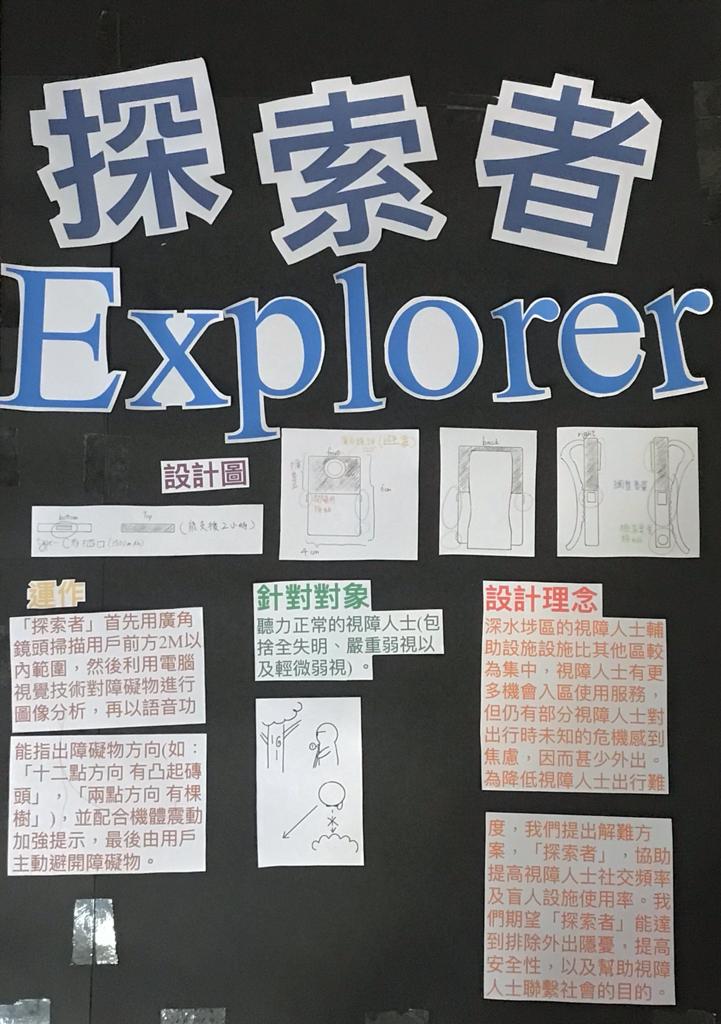 探索者
Explorer
設計圖
front
6cm
4cm
back
right
bottom
Top
運作
「探索者」首先用廣角
鏡頭掃描用戶前方2M以
內範圍，然後利用電腦
視覺技術對障礙物進行
圖像分析，再以語音功
能指出障礙物方向(如：
「十二點方向 有凸起磚
頭」，「兩點方向 有棵
樹」)，並配合機體震動
加強提示，最後由用戶
主動避開障礙物。
針對對象
聽力正常的視障人士(包
捨全失明、嚴重弱視以
及輕微弱視)。
設計理念
深水埗區的視障人士輔
助設施設施比其他區較
為集中，視障人士有更
多機會入區使用服務，
但仍有部分視障人士對
出行時未知的危機感到
焦慮，因而甚少外出。
為降低視障人士出行難
度，我們提出解難方
案，「探索者」，協助
提高視障人士社交頻率
及盲人設施使用率。我
們期望「探索者」能達
到排除外出隱憂，提高
安全性，以及幫助視障
人士聯繫社會的目的。